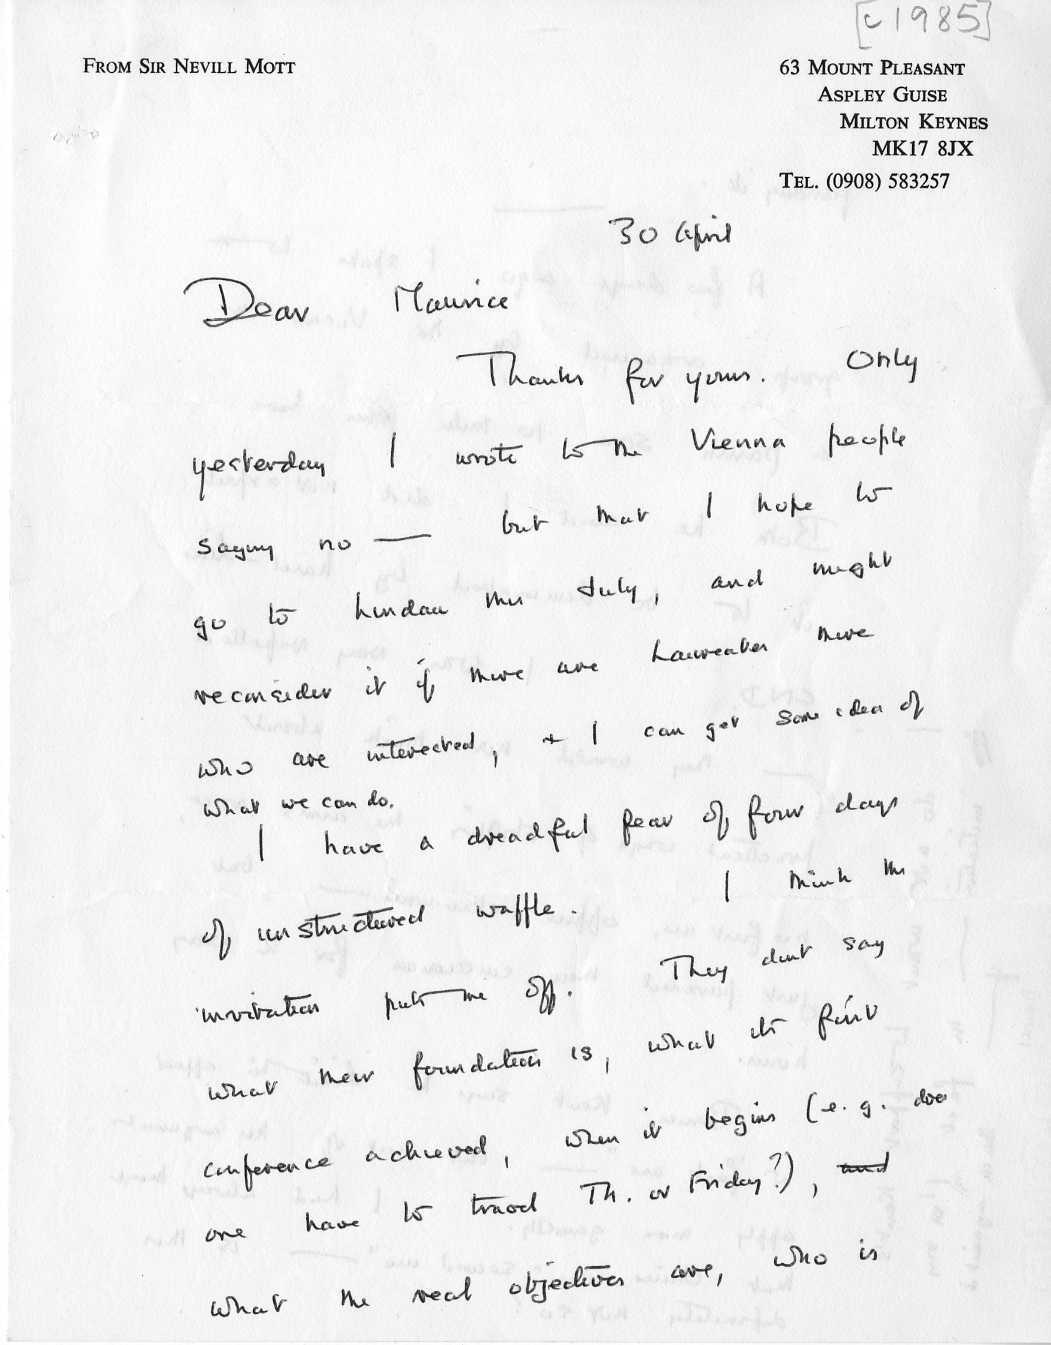 [c 1985]
FROM SIR NEVILL MOTT
63 MOUNT PLEASANT
ASPLEY GUISE
MILTON KEYNES
MK17 8JX
TEL. (0908) 583257
30 April
Dear Maurice
Thanks for yours. Only
yesterday I wrote to the Vienna people
saying no — but that I hope to
go to Lindau this July, and might
reconsider it if there are Laureates there
who are interested, + I can get some idea of
what we can do.
I have a dreadful fear of four days
of unstructured waffle. I think the
invitation puts me off. They dont say
what their foundation is, what its first
conference achieved, when it begins (e.g. does
one have to travel Th. or Friday?), and
what the real objectives are, who is